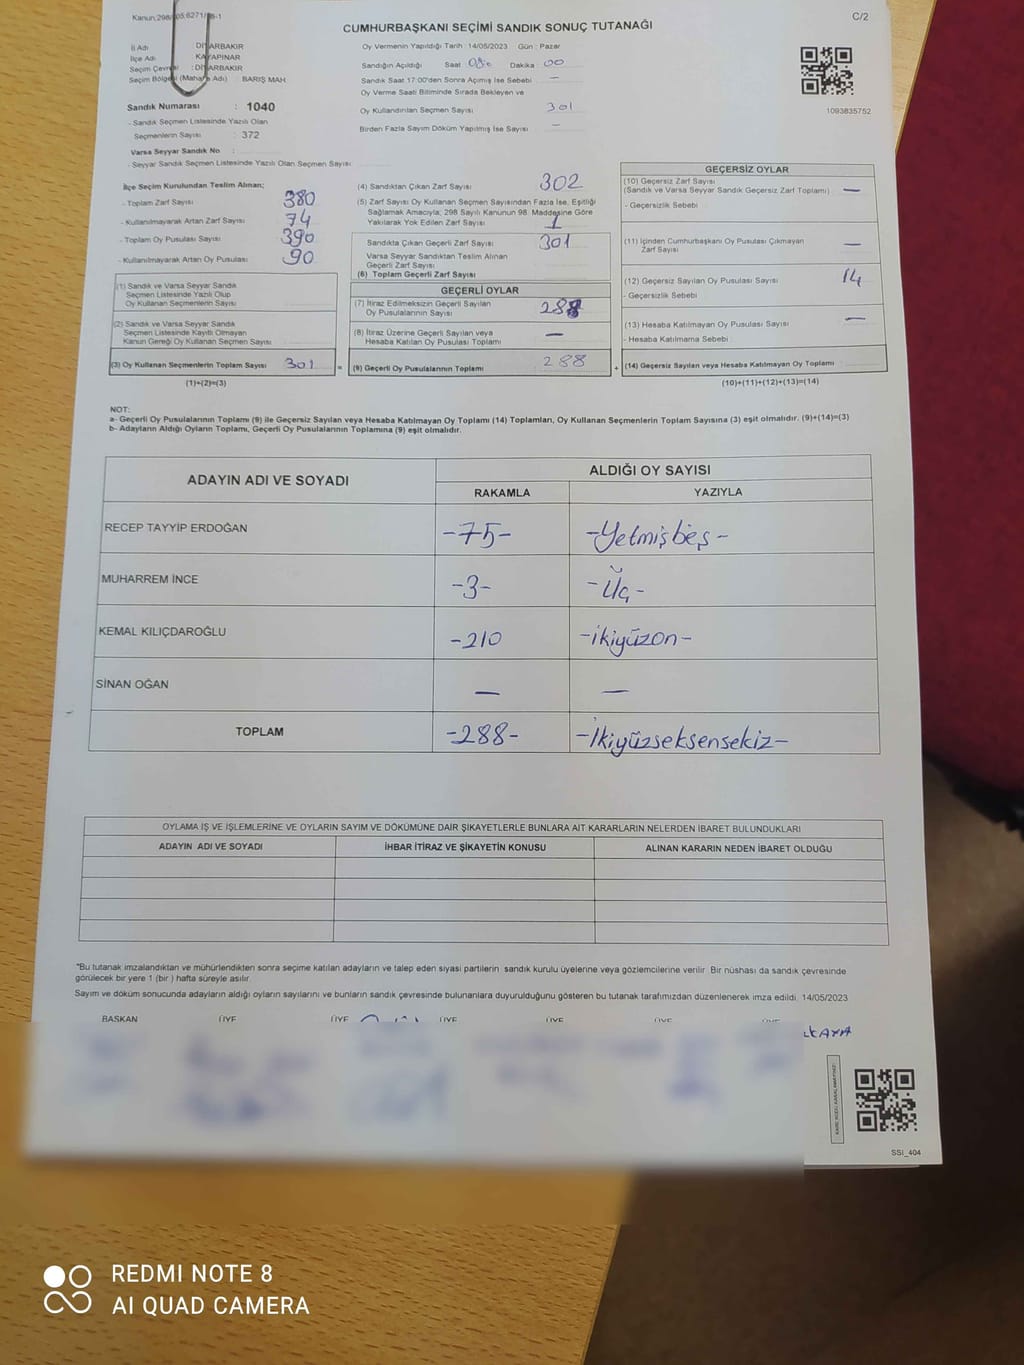 CUMHURBAŞKANI SEÇİMİ SANDIK SONUÇ TUTANAĞI
C/2
İl Adı DİYARBAKIR
İlçe Adı KAYAPINAR
Seçim Çevresi : DİYARBAKIR
Seçim Bölgesi (Mahalle Adı) BARIŞ MAH.
Oy Vermenin Yapıldığı Tarih : 14/05/2023 Gün : Pazar
Sandığın Açıldığı Saat Dakika 00
Sandık Saat 17:00'den Sonra Açımış İse Sebebi —
Oy Verme Saati Bitiminde Sırada Bekleyen ve
Oy Kullandırılan Seçmen Sayısı 301
Birden Fazla Sayım Döküm Yapılmış İse Sayısı —
1093835752
Sandık Numarası : 1040
- Sandık Seçmen Listesinde Yazılı Olan
Seçmenlerin Sayısı : 372
Varsa Seyyar Sandık No :
- Seyyar Sandık Seçmen Listesinde Yazılı Olan Seçmen Sayısı
İlçe Seçim Kurulundan Teslim Alınan;
- Toplam Zarf Sayısı 380
- Kullanılmayarak Artan Zarf Sayısı 74
- Toplam Oy Pusulası Sayısı 390
- Kullanılmayarak Artan Oy Pusulası 90
(1) Sandık ve Varsa Seyyar Sandık
Seçmen Listesinde Yazılı Olup
Oy Kullanan Seçmenlerin Sayısı
(2) Sandık ve Varsa Seyyar Sandık
Seçmen Listesinde Kayıtlı Olmayan
Kanun Gereği Oy Kullanan Seçmen Sayısı
(3) Oy Kullanan Seçmenlerin Toplam Sayısı 301 =
(1)+(2)=(3)
(4) Sandıktan Çıkan Zarf Sayısı 302
(5) Zarf Sayısı Oy Kullanan Seçmen Sayısından Fazla İse, Eşitliği
Sağlamak Amacıyla; 298 Sayılı Kanunun 98. Maddesine Göre
Yakılarak Yok Edilen Zarf Sayısı 1
Sandıkta Çıkan Geçerli Zarf Sayısı 301
Varsa Seyyar Sandıktan Teslim Alınan
Geçerli Zarf Sayısı
(6) Toplam Geçerli Zarf Sayısı
GEÇERLİ OYLAR
(7) İtiraz Edilmeksizin Geçerli Sayılan
Oy Pusulasının Sayısı 288
(8) İtiraz Üzerine Geçerli Sayılan veya
Hesaba Katılan Oy Pusulası Toplamı —
(9) Geçerli Oy Pusulalarının Toplamı 288 +
GEÇERSİZ OYLAR
(10) Geçersiz Zarf Sayısı
(Sandık ve Varsa Seyyar Sandık Geçersiz Zarf Toplamı) —
- Geçersizlik Sebebi
(11) İçinden Cumhurbaşkanı Oy Pusulası Çıkmayan
Zarf Sayısı —
(12) Geçersiz Sayılan Oy Pusulası Sayısı 14
- Geçersizlik Sebebi
(13) Hesaba Katılmayan Oy Pusulası Sayısı —
- Hesaba Katılmama Sebebi
(14) Geçersiz Sayılan veya Hesaba Katılmayan Oy Toplamı
(10)+(11)+(12)+(13)=(14)
NOT:
a- Geçerli Oy Pusulalarının Toplamı (9) ile Geçersiz Sayılan veya Hesaba Katılmayan Oy Toplamı (14) Toplamları, Oy Kullanan Seçmenlerin Toplam Sayısına (3) eşit olmalıdır. (9)+(14)=(3)
b- Adayların Aldığı Oyların Toplamı, Geçerli Oy Pusulalarının Toplamına (9) eşit olmalıdır.
ADAYIN ADI VE SOYADI
ALDIĞI OY SAYISI
RAKAMLA YAZIYLA
RECEP TAYYİP ERDOĞAN -75- -Yetmişbeş-
MUHARREM İNCE -3- -Üç-
KEMAL KILIÇDAROĞLU -210 -ikiyüzon-
SİNAN OĞAN — —
TOPLAM -288- -İkiyüzseksensekiz-
OYLAMA İŞ VE İŞLEMLERİNE VE OYLARIN SAYIM VE DÖKÜMÜNE DAİR ŞİKAYETLERLE BUNLARA AİT KARARLARIN NELERDEN İBARET BULUNDUKLARI
ADAYIN ADI VE SOYADI İHBAR İTİRAZ VE ŞİKAYETİN KONUSU ALINAN KARARIN NEDEN İBARET OLDUĞU
*Bu tutanak imzalandıktan ve mühürlendikten sonra seçime katılan adayların ve talep eden siyasi partilerin sandık kurulu üyelerine veya gözlemcilerine verilir. Bir nüshası da sandık çevresinde
görülecek bir yere 1 (bir ) hafta süreyle asılır.
Sayım ve döküm sonucunda adayların aldığı oyların sayılarını ve bunların sandık çevresinde bulunanlara duyurulduğunu gösteren bu tutanak tarafımızdan düzenlenerek imza edildi. 14/05/2023
BAŞKAN ÜYE ÜYE ÜYE ÜYE ÜYE ÜYE
SSI_404
REDMI NOTE 8
AI QUAD CAMERA